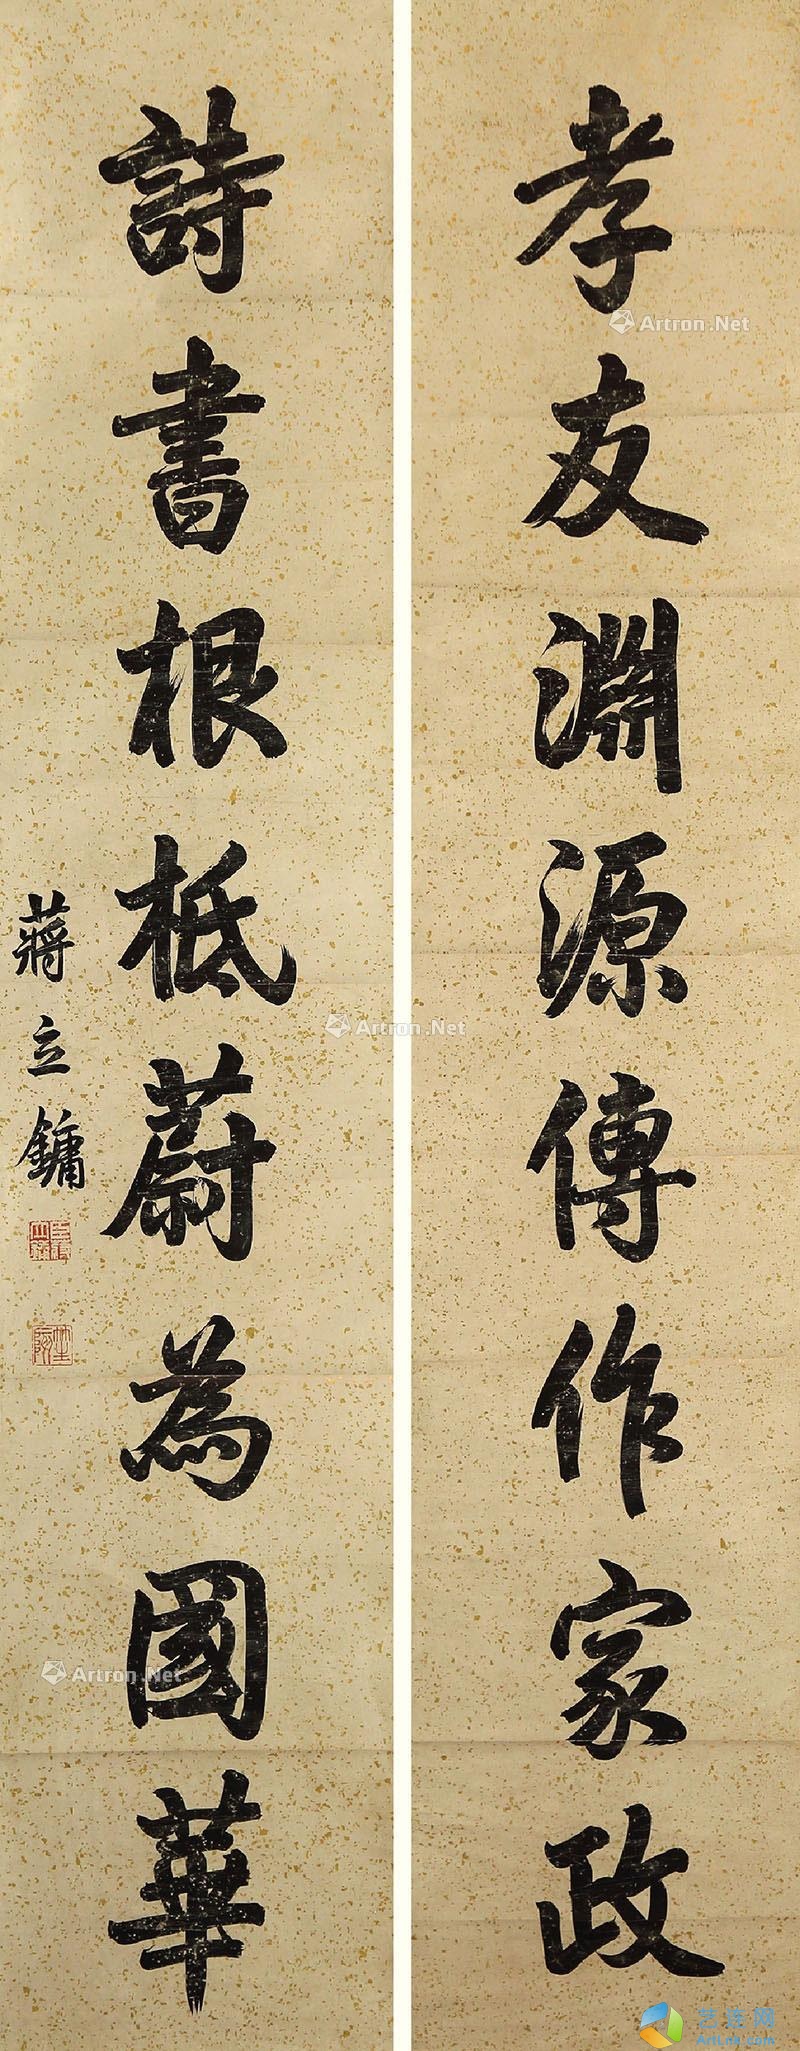 孝友淵源傳作家政
詩書根柢蔚為國華
蔣立鏞
Artron.Net
Artron.Net
Artron.Net
艺连网
ArtLnk.com